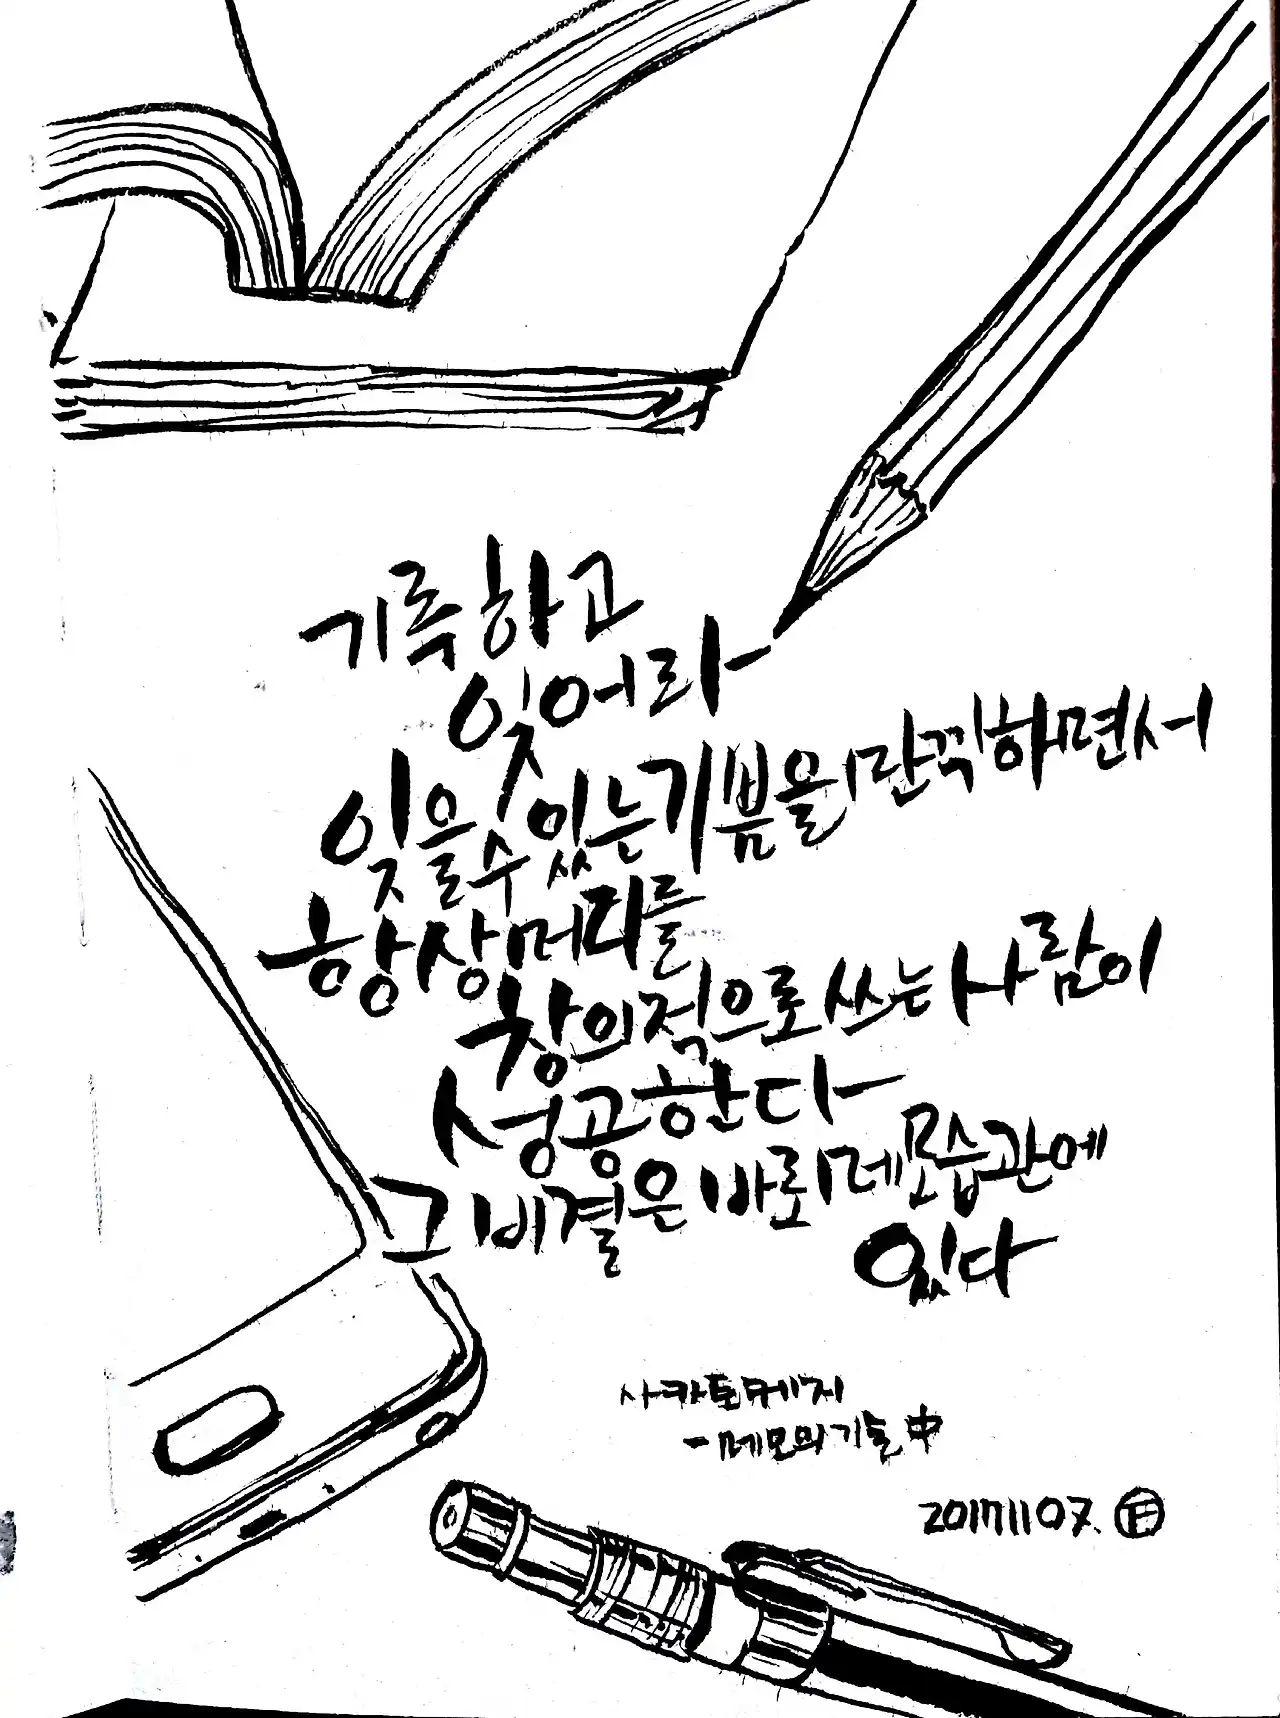 기록하고
잊어라
잊을 수 있는 기쁨을 만끽하면서
항상 머리를
창의적으로 쓰는 사람이
성공한다
그 비결은 바로 메모 습관에
있다
사카토 케지
- 메모의 기술 中
20171107. 正